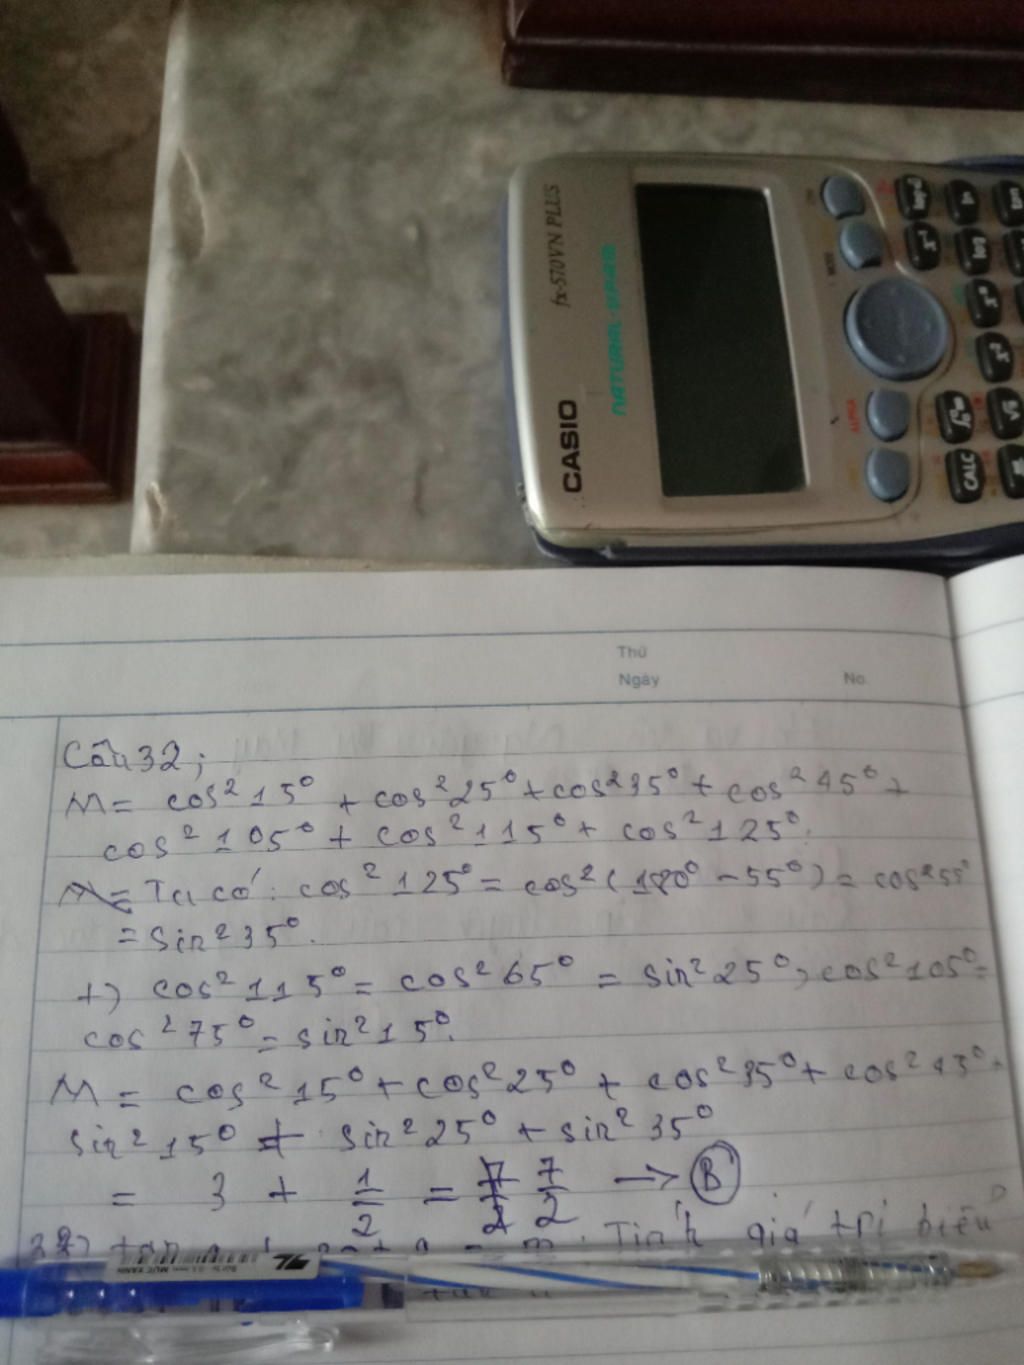 CASIO
fx-570VN PLUS
NATURAL-V.P.A.M.
ALPHA
MODE
CALC
log
x²
Thứ
Ngày
No.
Câu 32;
M = cos² 15° + cos² 25° + cos² 35° + cos² 45° +
cos² 105° + cos² 115° + cos² 125°.
Ta có: cos² 125° = cos² (180° - 55°) = cos² 55°
= sin² 35°.
+) cos² 115° = cos² 65° = sin² 25°, cos² 105° =
cos² 75° = sin² 15°.
M = cos² 15° + cos² 25° + cos² 35° + cos² 45° +
sin² 15° + sin² 25° + sin² 35°
= 3 + 1/2 = 7/2 → B
Tính giá trị biểu
TL
MỰC XANH